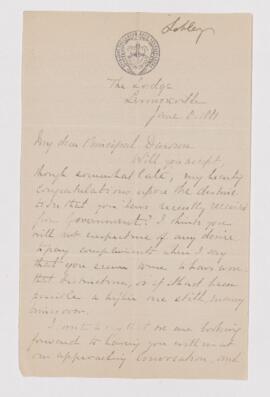 Lobley
The Lodge
Lennoxville
June 8. 1881
My dear Principal Dawson
Will you accept
though somewhat late, my hearty
congratulations upon the distinc-
tion that you have recently received
from Government? I think you
will not suspect me of any desire
to pay compliments when I say
that you seem to me to have won
that distinction, or if it had been
possible a higher one still, many
ago.
I write to say that we are looking
forward to having you with us at
our approaching Convocation, and